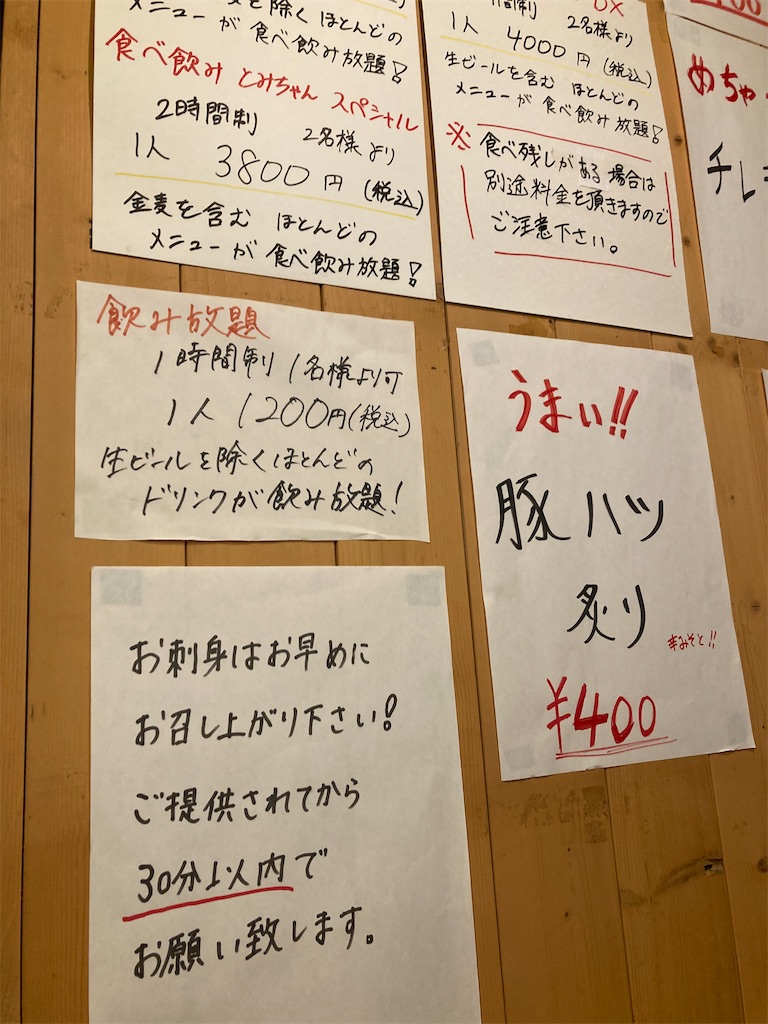 を除く ほとんどの
メニューが 食べ飲み放題!
食べ飲み とみちゃん スペシャル
2時間制 2名様より
1人 3800円(税込)
金麦を含む ほとんどの
メニューが 食べ飲み放題!
DX
間制 2名様より
1人 4000円(税込)
生ビールを含む ほとんどの
メニューが 食べ飲み放題!
※食べ残しがある場合は
別途料金を頂きますので
ご注意下さい。
めちゃ
チレ
飲み放題
1時間制 1名様より可
1人 1200円(税込)
生ビールを除くほとんどの
ドリンクが飲み放題!
うまい!!
豚ハツ
炙り
辛みそと!!
¥400
お刺身はお早めに
お召し上がり下さい!
ご提供されてから
30分以内で
お願い致します。